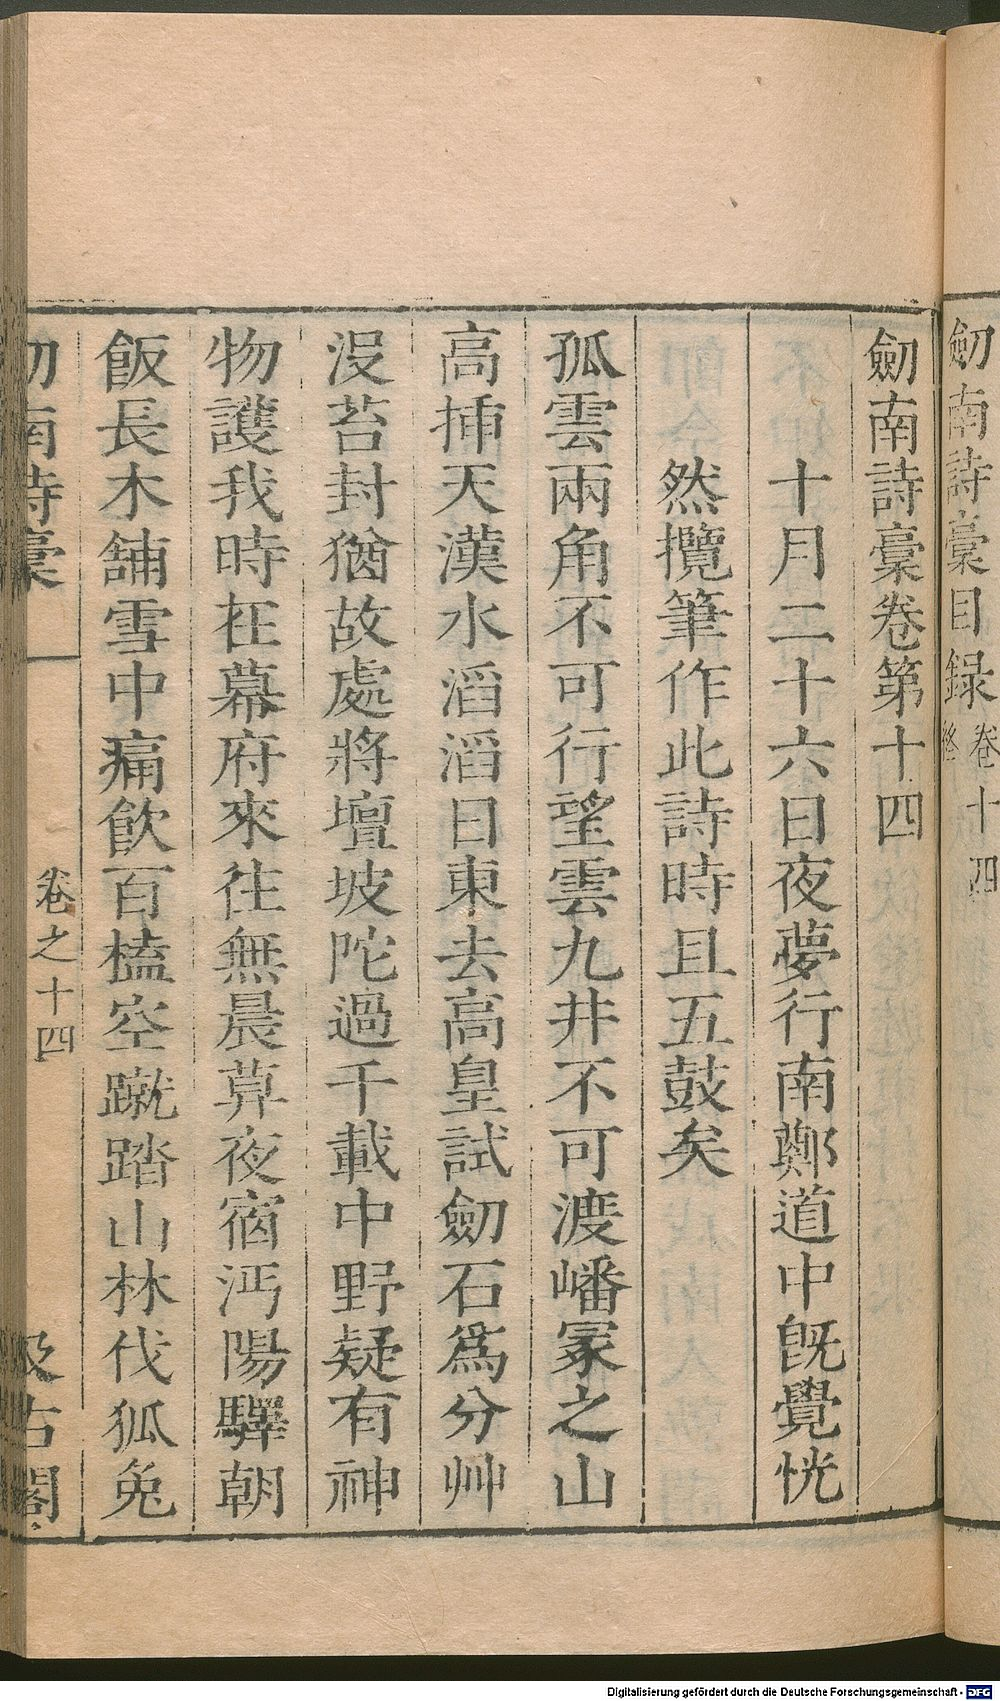 劒南詩稾目録 卷十四 終
劒南詩稾卷第十四
十月二十六日夜夢行南鄭道中旣覺恍
然攬筆作此詩時且五鼓矣
孤雲兩角不可行望雲九井不可渡嶓冡之山
高揷天漢水滔滔日東去高皇試劒石爲分艸
没苔封猶故處將壇坡陀過千載中野疑有神
物護我時在幕府來往無晨暮夜宿沔陽驛朝
飯長木舖雪中痛飲百榼空蹴踏山林伐狐兎
劒南詩稾 卷之十四 汲古閣
Digitalisierung gefördert durch die Deutsche Forschungsgemeinschaft - DFG